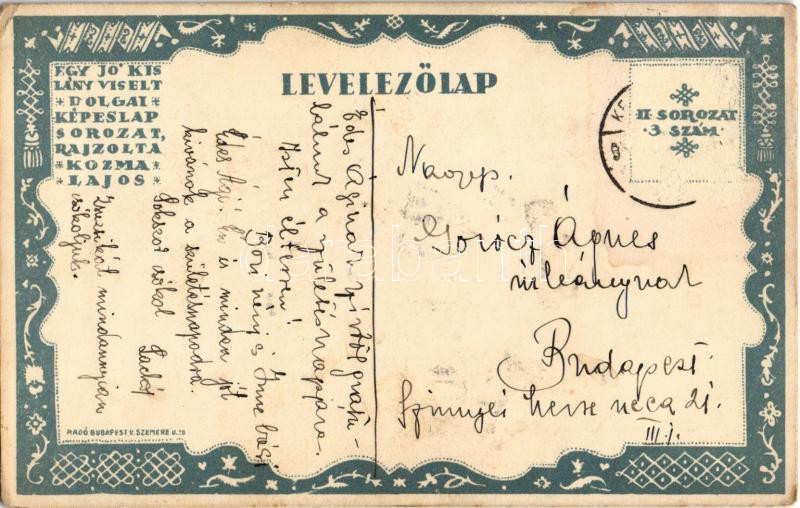 LEVELEZŐLAP
EGY JÓ KIS
LÁNY VISELT
DOLGAI
KÉPESLAP
SOROZAT,
RAJZOLTA
KOZMA
LAJOS
II SOROZAT
3 SZÁM
Édes Áginak szívből gratu-
lálunk a születésnapjára.
Isten éltesse!
Bori néni és Imre bácsi
Édes Ági! Én is minden jót
kívánok a születésnapodra.
Sokszor csókol
Zsuzsikát mindannyian
csókoljuk.
Nagys.
Gorócz Ágnes
úrleánynak
Budapest
Szinnyei Merse ucca 21.
III. 1.
RADÓ BUDAPEST V. SZEMERE U. 19
darabanth